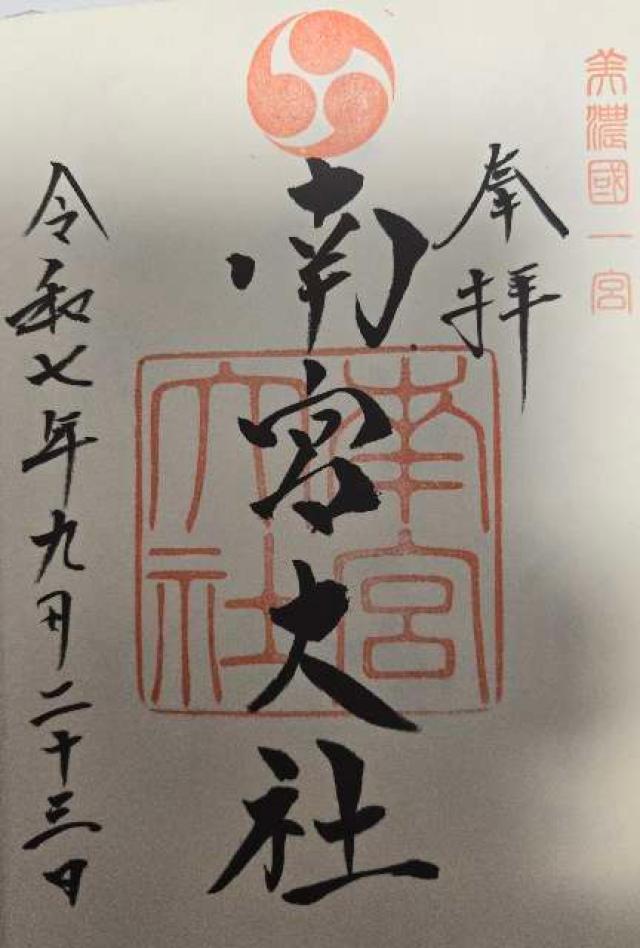 美濃國一宮
奉拝
南宮大社
南宮
大社
令和七年九月二十三日